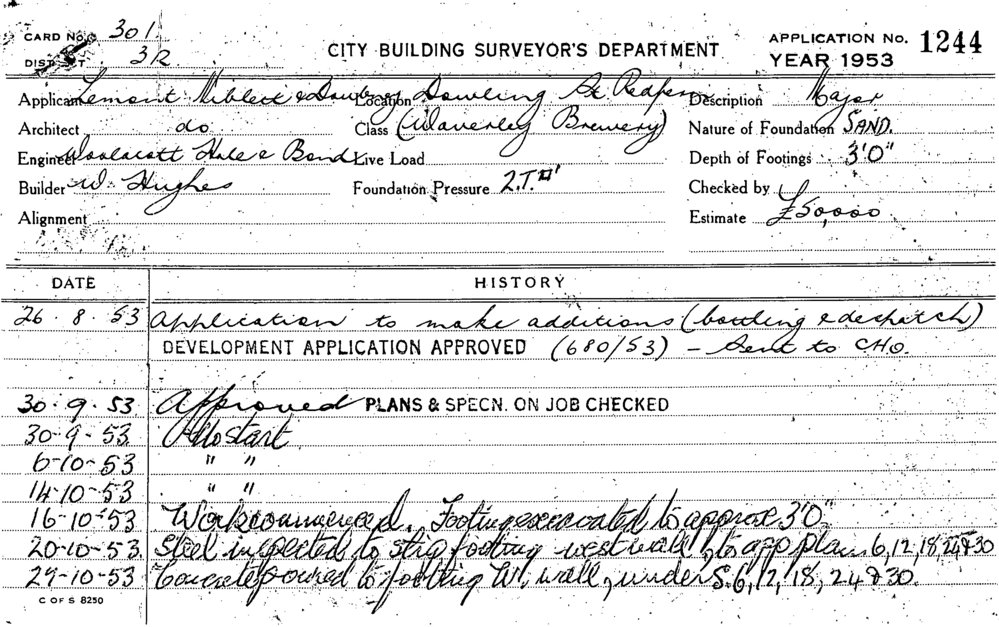 CARD No. 301
DISTRICT 3R
CITY BUILDING SURVEYOR'S DEPARTMENT
APPLICATION No. 1244
YEAR 1953
Applicant Lemont Niblett & Dowling Location Dowling St Redfern Description Major
Architect do Class (Waverley Brewery) Nature of Foundation SAND.
Engineer Woolacott Hale & Bond Live Load Depth of Footings 3'0"
Builder W. Hughes Foundation Pressure 2.T.□' Checked by
Alignment Estimate £50,000
DATE HISTORY
26.8.53 Application to make additions (bottling & despatch)
DEVELOPMENT APPLICATION APPROVED (680/53) - Sent to CHO.
30.9.53 Approved PLANS & SPECN. ON JOB CHECKED
30-9-53 No start
6-10-53 " "
14-10-53 " "
16-10-53 Work commenced. Footing excavated to approx 3'0"
20-10-53. Steel inspected to strip footing west wall, to app plan 6, 12, 18, 24 & 30
29-10-53 Concrete poured to footing W. wall, under S. 6, 12, 18, 24 & 30.
C OF S 8250